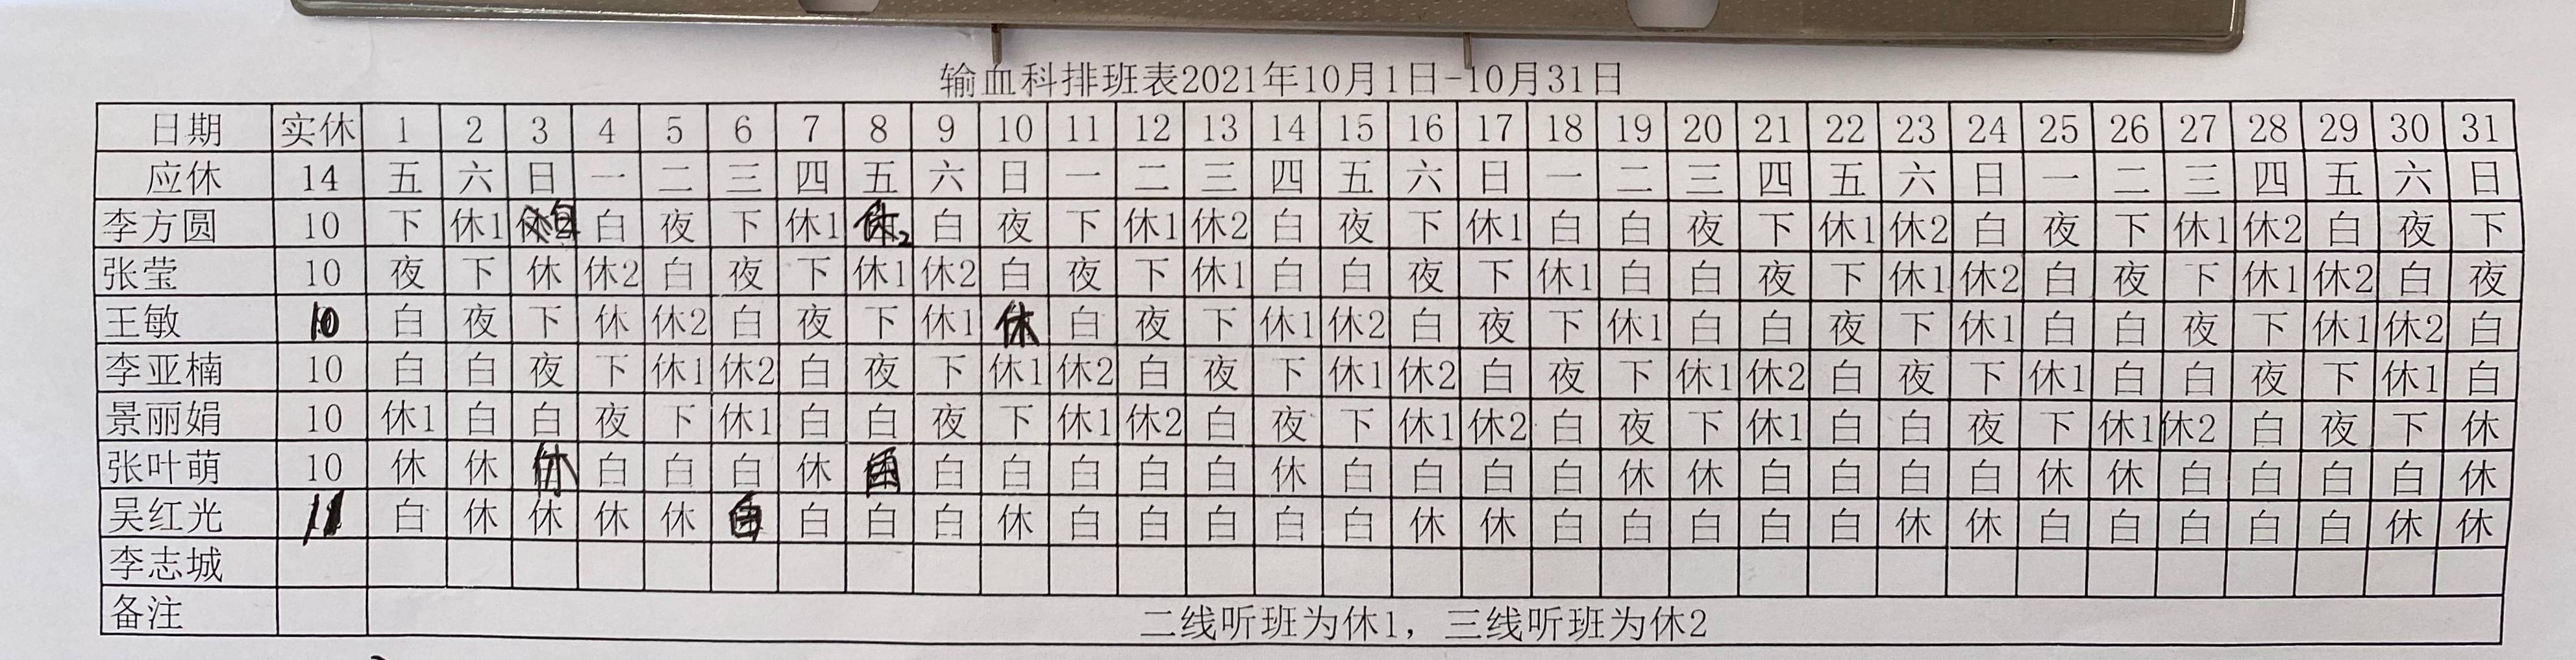 输血科排班表2021年10月1日-10月31日
日期 实休 1 2 3 4 5 6 7 8 9 10 11 12 13 14 15 16 17 18 19 20 21 22 23 24 25 26 27 28 29 30 31
应休 14 五 六 日 一 二 三 四 五 六 日 一 二 三 四 五 六 日 一 二 三 四 五 六 日 一 二 三 四 五 六 日
李方圆 10 下 休1 白 夜 下 休1 休2 白 夜 下 休1 休2 白 夜 下 休1 白 白 夜 下 休1 休2 白 夜 下 休1 休2 白 夜 下
张莹 10 夜 下 休 休2 白 夜 下 休1 休2 白 夜 下 休1 白 白 夜 下 休1 白 白 夜 下 休1 休2 白 夜 下 休1 休2 白 夜
王敏 10 白 夜 下 休 休2 白 夜 下 休1 休 白 夜 下 休1 休2 白 夜 下 休1 白 白 夜 下 休1 白 白 夜 下 休1 休2 白
李亚楠 10 白 白 夜 下 休1 休2 白 夜 下 休1 休2 白 夜 下 休1 休2 白 夜 下 休1 休2 白 夜 下 休1 白 白 夜 下 休1 白
景丽娟 10 休1 白 白 夜 下 休1 白 白 夜 下 休1 休2 白 夜 下 休1 休2 白 夜 下 休1 白 白 夜 下 休1 休2 白 夜 下 休
张叶萌 10 休 休 休 白 白 白 休 白 白 白 白 白 白 休 白 白 白 白 休 休 白 白 白 白 休 休 白 白 白 白 休
吴红光 11 白 休 休 休 休 白 白 白 白 休 白 白 白 白 白 休 休 白 白 白 白 白 休 休 白 白 白 白 白 休 休
李志城
备注 二线听班为休1，三线听班为休2